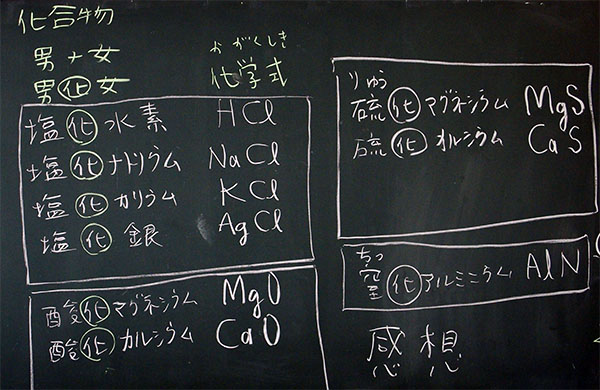 化合物
男+女
男化女
かがくしき
化学式
塩化水素 HCl
塩化ナトリウム NaCl
塩化カリウム KCl
塩化銀 AgCl
酸化マグネシウム MgO
酸化カルシウム CaO
りゅう
硫化マグネシウム MgS
硫化カルシウム CaS
ちっ
窒化アルミニウム AlN
感想